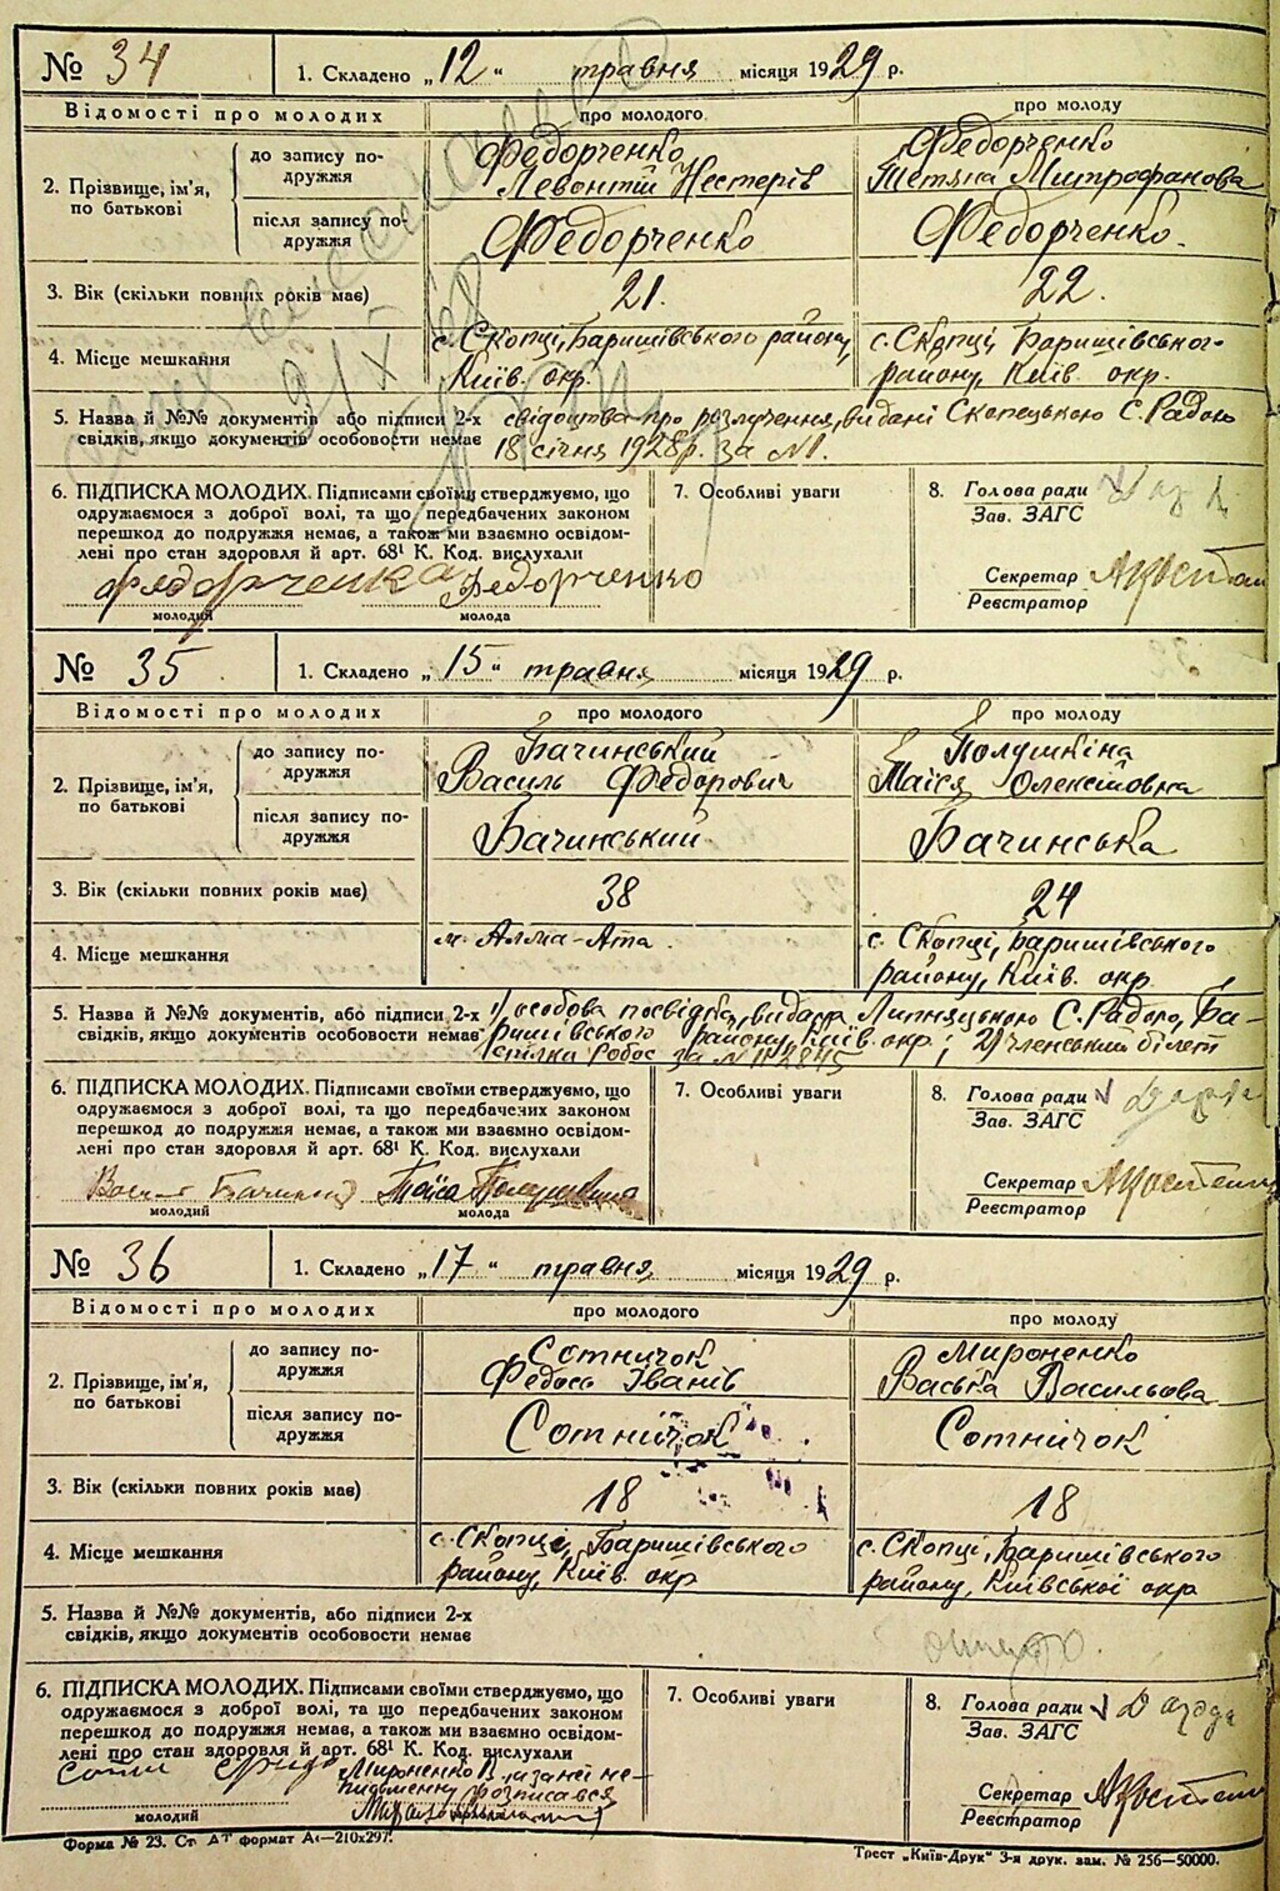 № 34
1. Складено „12“ травня місяця 1929 р.
Відомості про молодих
про молодого
про молоду
2. Прізвище, ім'я,
по батькові
до запису по-
дружжя
Федорченко
Левонтій Нестерів
Федорченко
Тетяна Митрофанова
після запису по-
дружжя
Федорченко
Федорченко.
3. Вік (скільки повних років має)
21.
22.
4. Місце мешкання
с. Скопці, Баришівського району,
Київ. окр.
с. Скопці, Баришівськог-
району, Київ. окр.
5. Назва й №№ документів або підписи 2-х
свідків, якщо документів особовости немає
свідоцтва про розлучення, видані Скопецькою С. Радою
18 січня 1928р. за №1.
6. ПІДПИСКА МОЛОДИХ. Підписами своїми стверджуємо, що
одружаємося з доброї волі, та що передбачених законом
перешкод до подружжя немає, а також ми взаємно освідом-
лені про стан здоровля й арт. 68¹ К. Код. вислухали
Федорченко
молодий
молода
7. Особливі уваги
8. Голова ради
Зав. ЗАГС
Секретар
Реєстратор
№ 35
1. Складено „15“ травня місяця 1929 р.
Відомості про молодих
про молодого
про молоду
2. Прізвище, ім'я,
по батькові
до запису по-
дружжя
Бачинський
Василь Федорович
Полушкіна
Таїся Олексіївна
після запису по-
дружжя
Бачинський
Бачинська
3. Вік (скільки повних років має)
38
24
4. Місце мешкання
м. Алма-Ата.
с. Скопці, Баришівського
району, Київ. окр.
5. Назва й №№ документів, або підписи 2-х
свідків, якщо документів особовости немає
1) особова посвідка, видана Липняцькою С. Радою, Ба-
ришівського району, Київ. окр.; 2) Членський білет
спілка Робос за №
6. ПІДПИСКА МОЛОДИХ. Підписами своїми стверджуємо, що
одружаємося з доброї волі, та що передбачених законом
перешкод до подружжя немає, а також ми взаємно освідом-
лені про стан здоровля й арт. 68¹ К. Код. вислухали
Таїса Полушкина
молодий
молода
7. Особливі уваги
8. Голова ради
Зав. ЗАГС
Секретар
Реєстратор
№ 36
1. Складено „17“ травня місяця 1929 р.
Відомості про молодих
про молодого
про молоду
2. Прізвище, ім'я,
по батькові
до запису по-
дружжя
Сотничок
Федось Іванів
Мироненко
Васька Васильова
після запису по-
дружжя
Сотничок
Сотничок
3. Вік (скільки повних років має)
18
18
4. Місце мешкання
с. Скопці, Баришівського
району, Київ. окр
с. Скопці, Баришівського
району, Київської окр
5. Назва й №№ документів, або підписи 2-х
свідків, якщо документів особовости немає
6. ПІДПИСКА МОЛОДИХ. Підписами своїми стверджуємо, що
одружаємося з доброї волі, та що передбачених законом
перешкод до подружжя немає, а також ми взаємно освідом-
лені про стан здоровля й арт. 68¹ К. Код. вислухали
Мироненко В. за неї не-
письменну розписався
молодий
7. Особливі уваги
8. Голова ради
Зав. ЗАГС
Секретар
Реєстратор
Форма № 23. Ст формат А₄—210х297.
Трест „Київ-Друк“ 3-я друк. зам. № 256—50000.